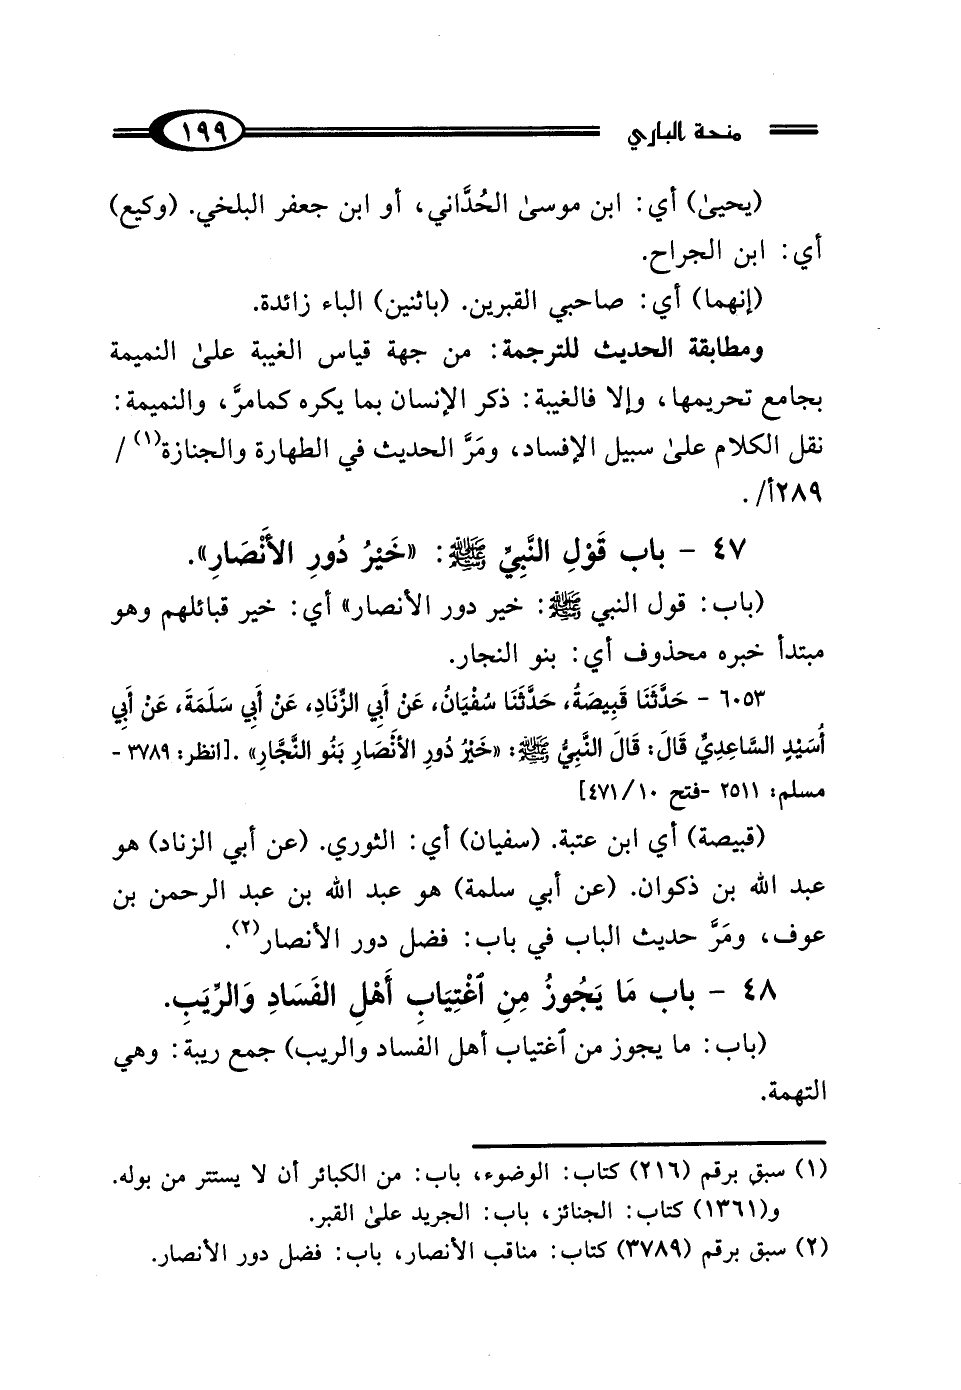 منحة الباري ١٩٩
(يحيىٰ) أي: ابن موسىٰ الحُدَّاني، أو ابن جعفر البلخي. (وكيع)
أي: ابن الجراح.
(إنهما) أي: صاحبي القبرين. (باثنين) الباء زائدة.
ومطابقة الحديث للترجمة: من جهة قياس الغيبة علىٰ النميمة
بجامع تحريمها، وإلا فالغيبة: ذكر الإنسان بما يكره كمامرَّ، والنميمة:
نقل الكلام علىٰ سبيل الإفساد، ومَرَّ الحديث في الطهارة والجنازة(١) /
٢٨٩أ/ .
٤٧ - باب قَوْلِ النَّبِيِّ ﷺ: «خَيْرُ دُورِ الأَنْصَارِ».
(باب: قول النبي ﷺ: خير دور الأنصار» أي: خير قبائلهم وهو
مبتدأ خبره محذوف أي: بنو النجار.
٦٠٥٣ - حَدَّثَنَا قَبِيصَةُ، حَدَّثَنَا سُفْيَانُ، عَنْ أَبِي الزِّنَادِ، عَنْ أَبِي سَلَمَةَ، عَنْ أَبِي
أُسَيْدٍ السَّاعِدِيِّ قَالَ: قَالَ النَّبِيُّ ﷺ: «خَيْرُ دُورِ الأَنْصَارِ بَنُو النَّجَّارِ» .[انظر: ٣٧٨٩ -
مسلم: ٢٥١١ -فتح ١٠/ ٤٧١]
(قبيصة) أي ابن عتبة. (سفيان) أي: الثوري. (عن أبي الزناد) هو
عبد الله بن ذكوان. (عن أبي سلمة) هو عبد الله بن عبد الرحمن بن
عوف، ومَرَّ حديث الباب في باب: فضل دور الأنصار(٢).
٤٨ - باب مَا يَجُوزُ مِنِ ٱغْتِيَابِ أَهْلِ الفَسَادِ وَالرِّيَبِ.
(باب: ما يجوز من ٱغتياب أهل الفساد والريب) جمع ريبة: وهي
التهمة.
(١) سبق برقم (٢١٦) كتاب: الوضوء، باب: من الكبائر أن لا يستتر من بوله.
و(١٣٦١) كتاب: الجنائز، باب: الجريد علىٰ القبر.
(٢) سبق برقم (٣٧٨٩) كتاب: مناقب الأنصار، باب: فضل دور الأنصار.